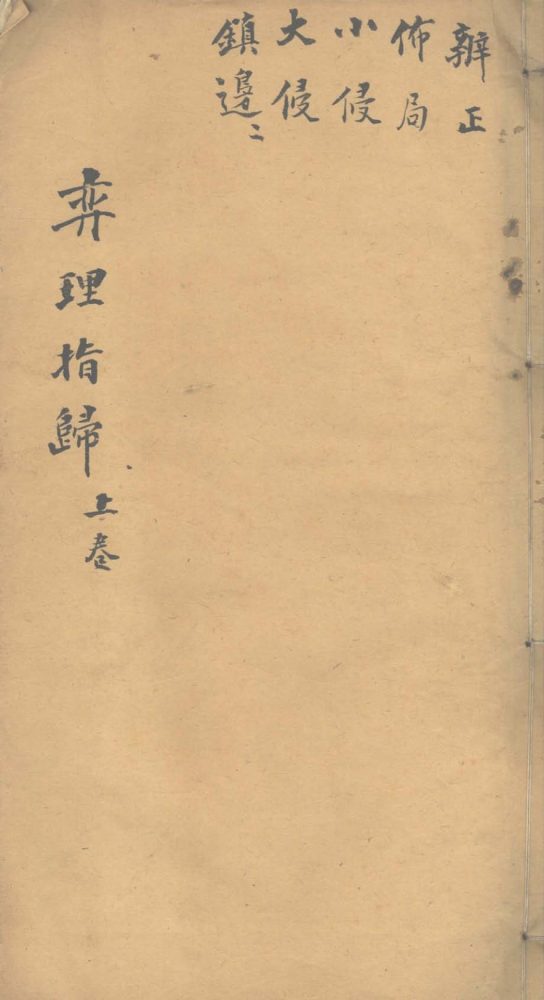 辨正
佈局
小侵
大侵
鎮邊二
弈理指歸
上卷